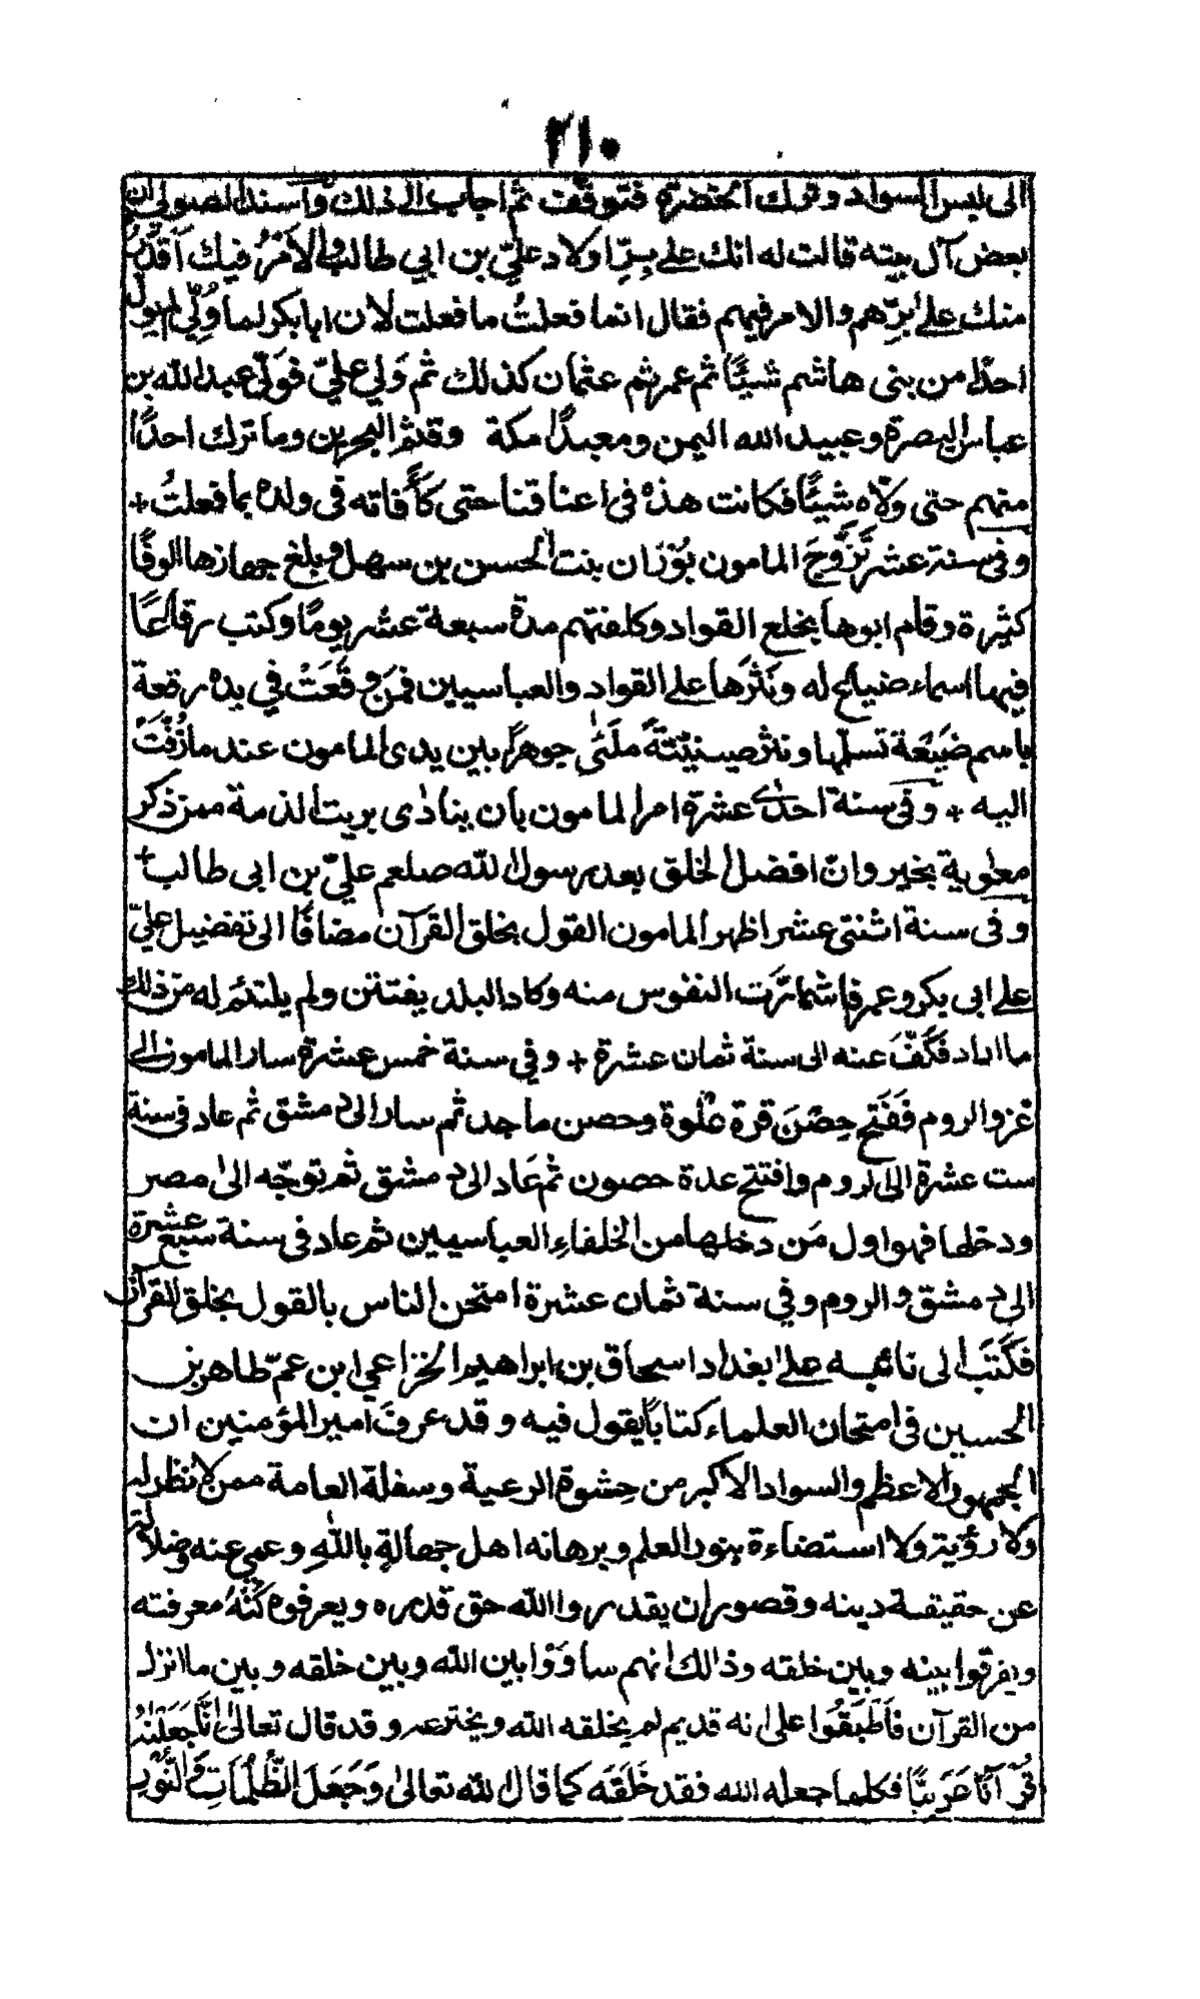 ٢١٠
الى لبس السواد وترك الخضرة فتوقف ثم اجاب الى ذلك واسند الصولى ان
بعض آل بيته قالت له انك على بِرِّ اولاد علىّ بن ابي طالب والامْرُ فيك اَقْدَرُ
منك على بِرِّهم والامر فيهم فقال انما فعلتُ ما فعلت لان ابا بكر لما وُلِّي لم يولّ
احدًا من بنى هاشم شيئًا ثم عمر ثم عثمان كذلك ثم وَلي عليّ فَولّى عبد الله بن
عباس البصرة وعبيد الله اليمن ومعبدًا مكة وقثم البحرين وما ترك احدًا
منهم حتى ولّاه شيئًا فكانت هذه فى اعناقنا حتى كَأفاته فى ولده بما فعلتُ +
وفى سنة عشر تَزَوَّجَ المامون بُوْرَان بنت الحسن بن سهل وبلغ جهازها الوفًا
كثيرة وقام ابوها بخلع القواد وكلفتهم مدة سبعة عشر يومًا وكتب رقاعًا
فيها اسماء ضياع له ونَثَرَها على القواد والعباسيين فمن وقَعَتْ في يده رقعة
باسم ضَيْعَة تسلمها ونثر صينيّتهً ملَئى جوهرًا بين يدى المامون عند ما زُفَّتَ
اليه + وفى سنة احدٰے عشرة امر المامون بان ينادٰى بريت الذمة ممن ذكر
معٰوية بخير وانّ افضل الخلق بعد رسول الله صلعم علىّ بن ابى طالب +
وفى سنة اثنتى عشر اظهر المامون القول بخلق القرآن مضافًا الى تفضيل علىّ
على ابى بكر وعمر فاشمازّت النفوس منه وكاد البلد يفتتن ولم يلتئم له من ذلك
ما اراد فكَفَّ عنه الى سنة ثمان عشرة + وفي سنة خمس عشرة سار المامون الى
غزو الروم فَفَتح حِصْنَ قرة عَنْوة وحصن ماجد ثم سار الى دمشق ثم عاد فى سنة
ست عشرة الى الروم وافتتح عدة حصون ثم عَاد الى دمشق ثم توجّه الى مصر
ودخلها فهو اول مَن دخلها من الخلفاءِ العباسيين ثم عاد فى سنة سبع عشرة
الى دمشق والروم وفي سنة ثمان عشرة امتحن الناس بالقول بخلق القرآن
فكَتَبَ الى نائبه على بغداد اسحاق بن ابراهيم الخزاعي ابن عمّ طاهر بن
الحسين فى امتحان العلماء كتابًا يقول فيه وقد عرفَ امير المؤمنين ان
الجمهور الاعظم والسواد الاكبر من حِشْوة الرعية وسفلة العامة ممن لا نظر له
ولا رؤية ولا استضاءة بنور العلم وبرهانه اهل جهالةٍ باللّٰهِ وعمى عنه وضلالة
عن حقيقة دينه وقصور ان يقدروا الله حق قدره ويعرفوه كُنْهَ معرفته
ويفرقوا بينه وبين خلقه وذالك انهم ساوَوْا بين الله وبين خلقه وبين ما انزل
من القرآن فاَطْبَقُوا على انه قديم لم يخلقه الله ويخترعه وقد قال تعالٰى اِنَّا جَعَلْنٰهُ
قُرْآنًا عَرَبِيًّا فكلما جعله الله فقد خَلَقَه كما قال الله تعالىٰ وَجَعَلَ الظُّلُمَاتِ وَالنُّوْرَ